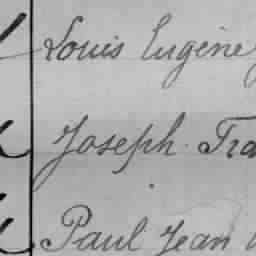 Louis Eugène
Joseph
Paul Jean